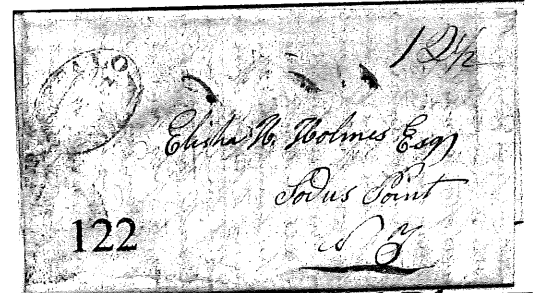 ALO
12 1/2
Elisha N. Holmes Esq
Sodus Point
N Y
122